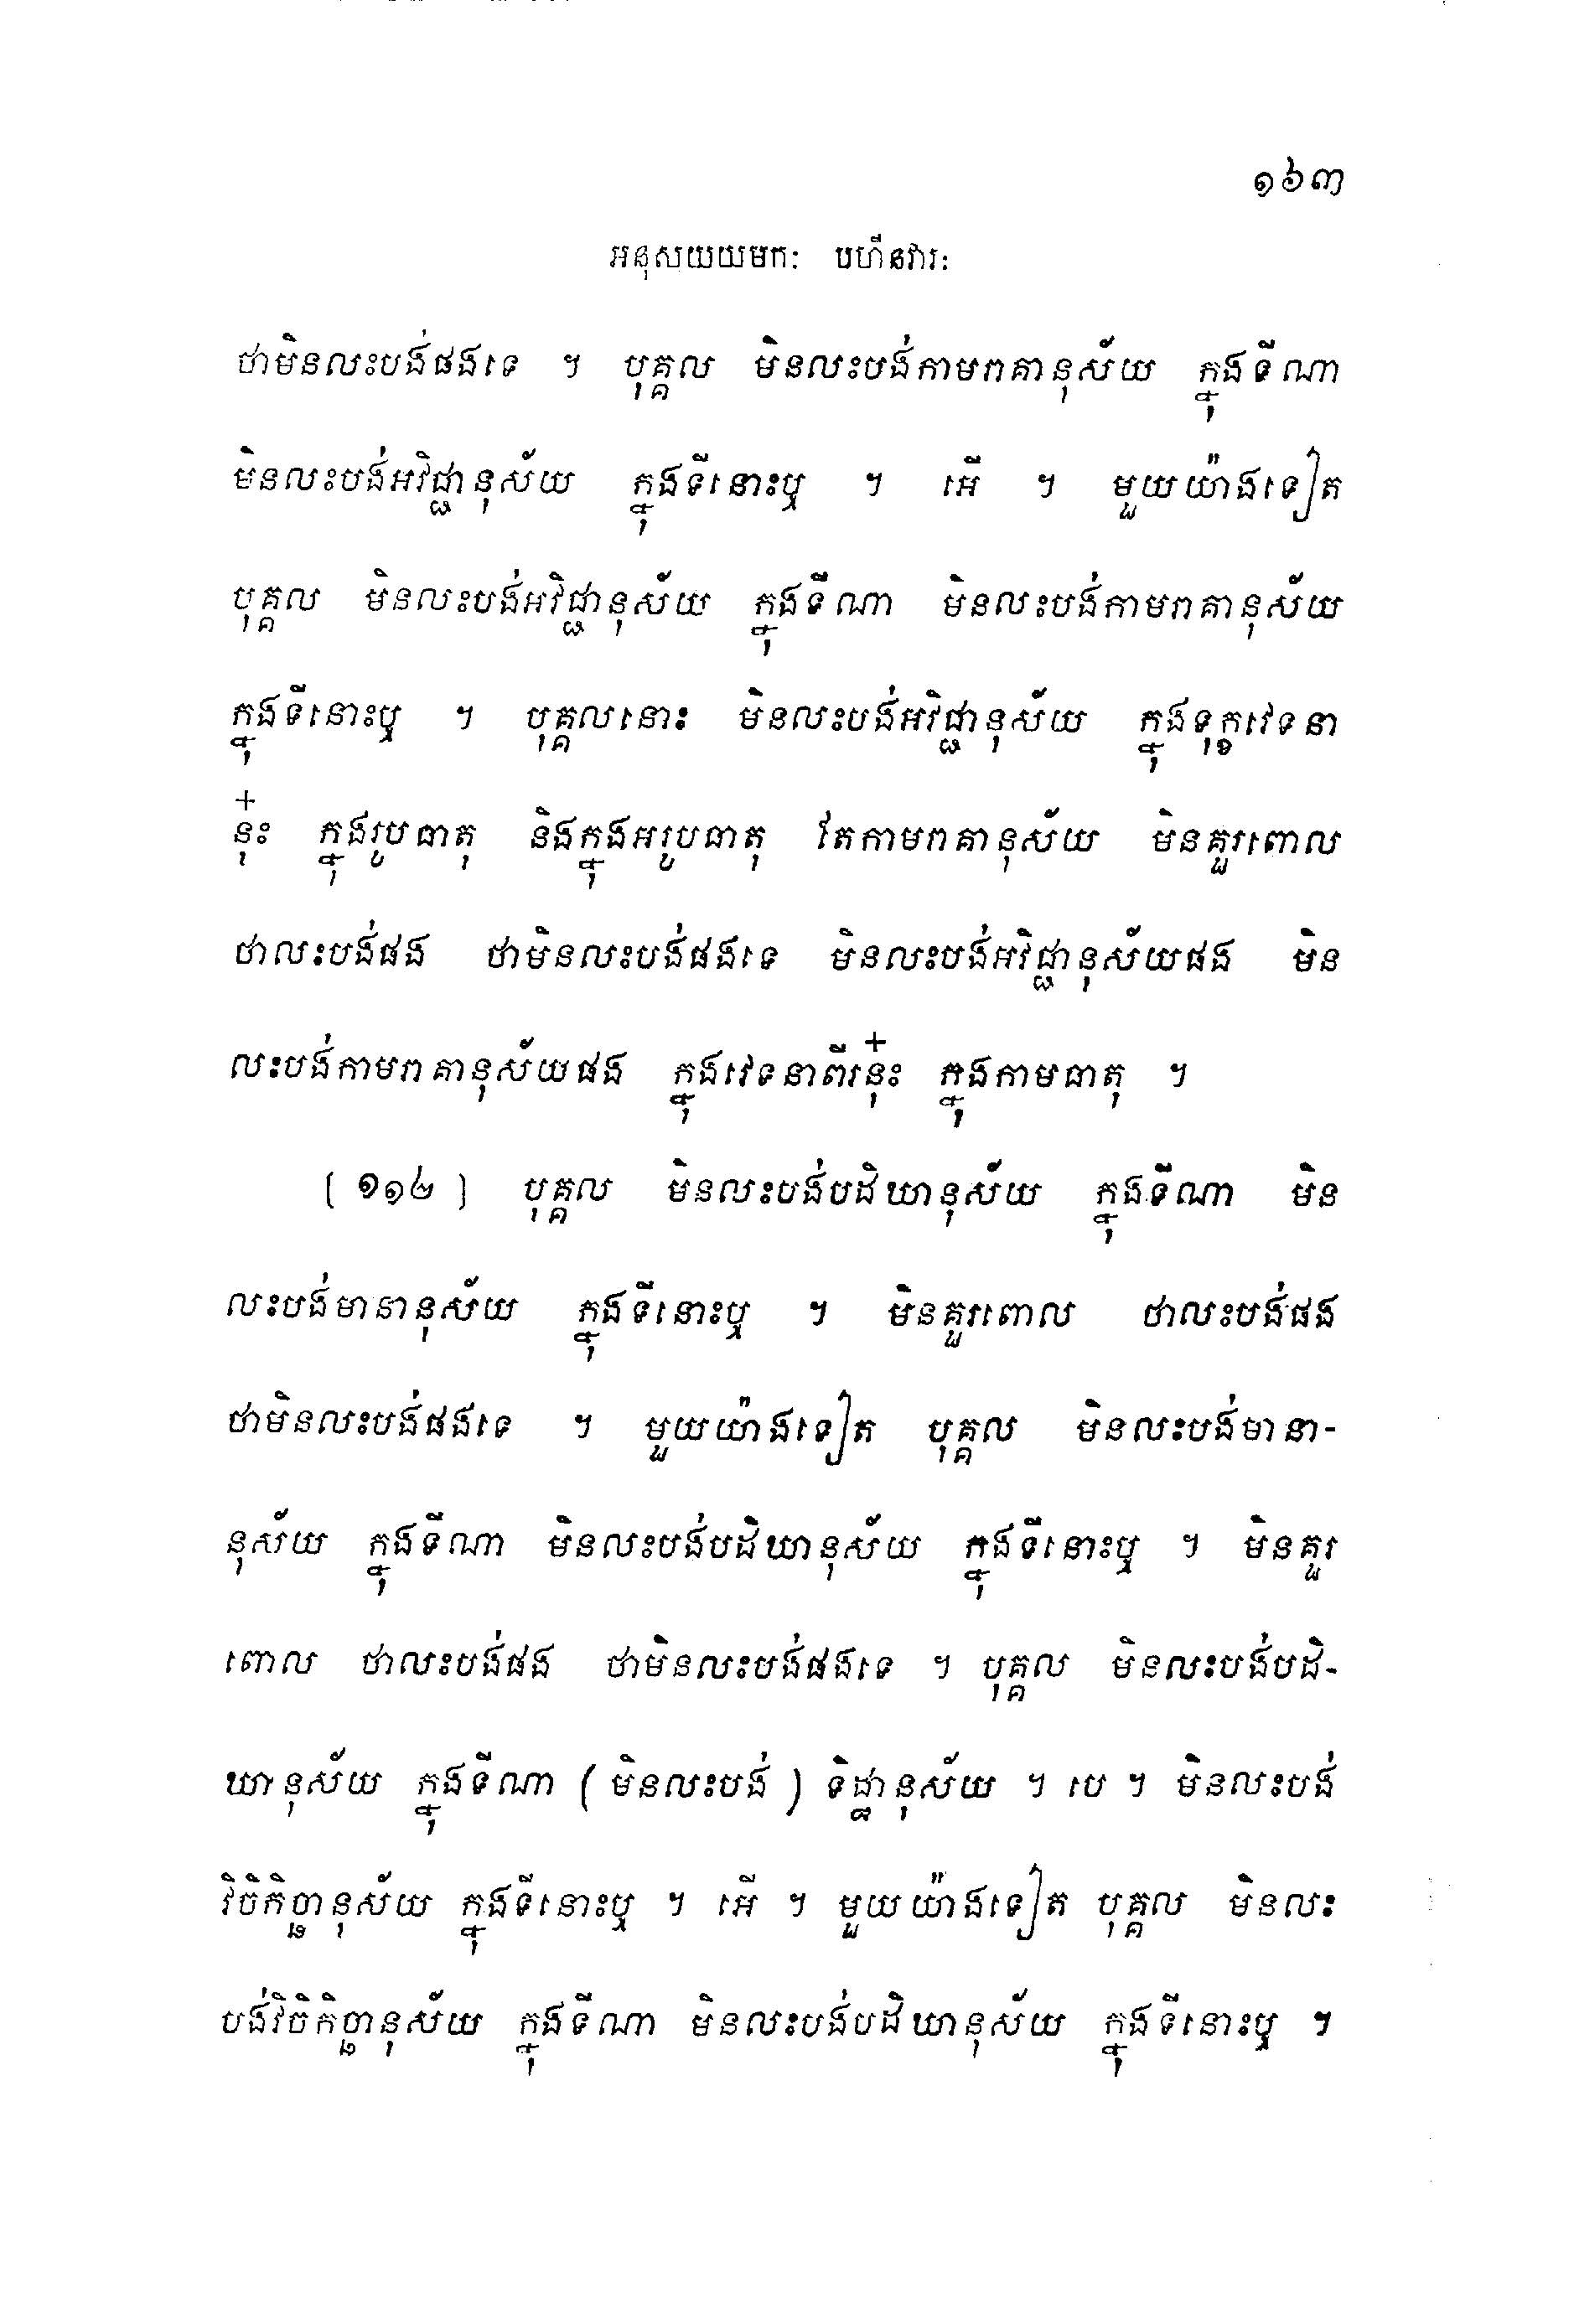 ១៦៣
អនុសយយមកៈ បហីនវារៈ
ថាមិនលះបង់ផងទេ ។ បុគ្គល មិនលះបង់កាមរាគានុស័យ ក្នុងទីណា
មិនលះបង់អវិជ្ជានុស័យ ក្នុងទីនោះឬ ។ អើ ។ មួយយ៉ាងទៀត
បុគ្គល មិនលះបង់អវិជ្ជានុស័យ ក្នុងទីណា មិនលះបង់កាមរាគានុស័យ
ក្នុងទីនោះឬ ។ បុគ្គលនោះ មិនលះបង់អវិជ្ជានុស័យ ក្នុងទុក្ខវេទនា
+
នុ៎ះ ក្នុងរូបធាតុ និងក្នុងអរូបធាតុ តែកាមរាគានុស័យ មិនគួរពោល
ថាលះបង់ផង ថាមិនលះបង់ផងទេ មិនលះបង់អវិជ្ជានុស័យផង មិន
លះបង់កាមរាគានុស័យផង ក្នុងវេទនាពីរនុ៎ះ ក្នុងកាមធាតុ ។
(១១៤) បុគ្គល មិនលះបង់បដិឃានុស័យ ក្នុងទីណា មិន
លះបង់មានានុស័យ ក្នុងទីនោះឬ ។ មិនគួរពោល ថាលះបង់ផង
ថាមិនលះបង់ផងទេ ។ មួយយ៉ាងទៀត បុគ្គល មិនលះបង់មានា-
នុស័យ ក្នុងទីណា មិនលះបង់បដិឃានុស័យ ក្នុងទីនោះឬ ។ មិនគួរ
ពោល ថាលះបង់ផង ថាមិនលះបង់ផងទេ ។ បុគ្គល មិនលះបង់បដិ-
ឃានុស័យ ក្នុងទីណា (មិនលះបង់) ទិដ្ឋានុស័យ ។ បេ ។ មិនលះបង់
វិចិកិច្ឆានុស័យ ក្នុងទីនោះឬ ។ អើ ។ មួយយ៉ាងទៀត បុគ្គល មិនលះ
បង់វិចិកិច្ឆានុស័យ ក្នុងទីណា មិនលះបង់បដិឃានុស័យ ក្នុងទីនោះឬ ។